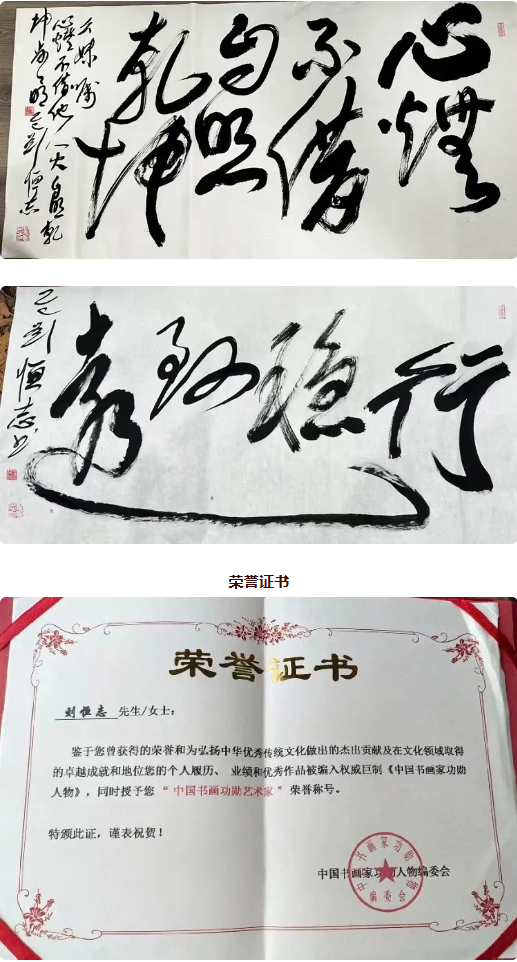 心燈
不借
自照
乾坤
行穩致遠
刘恒志书
荣誉证书
荣誉证书
刘恒志 先生/女士：
鉴于您曾获得的荣誉和为弘扬中华优秀传统文化做出的杰出贡献及在文化领域取得
的卓越成就和地位您的个人履历、业绩和优秀作品被编入权威巨制《中国书画家功勋
人物》，同时授予您“中国书画功勋艺术家”荣誉称号。
特颁此证，谨表祝贺！
中国书画家功勋人物编委会